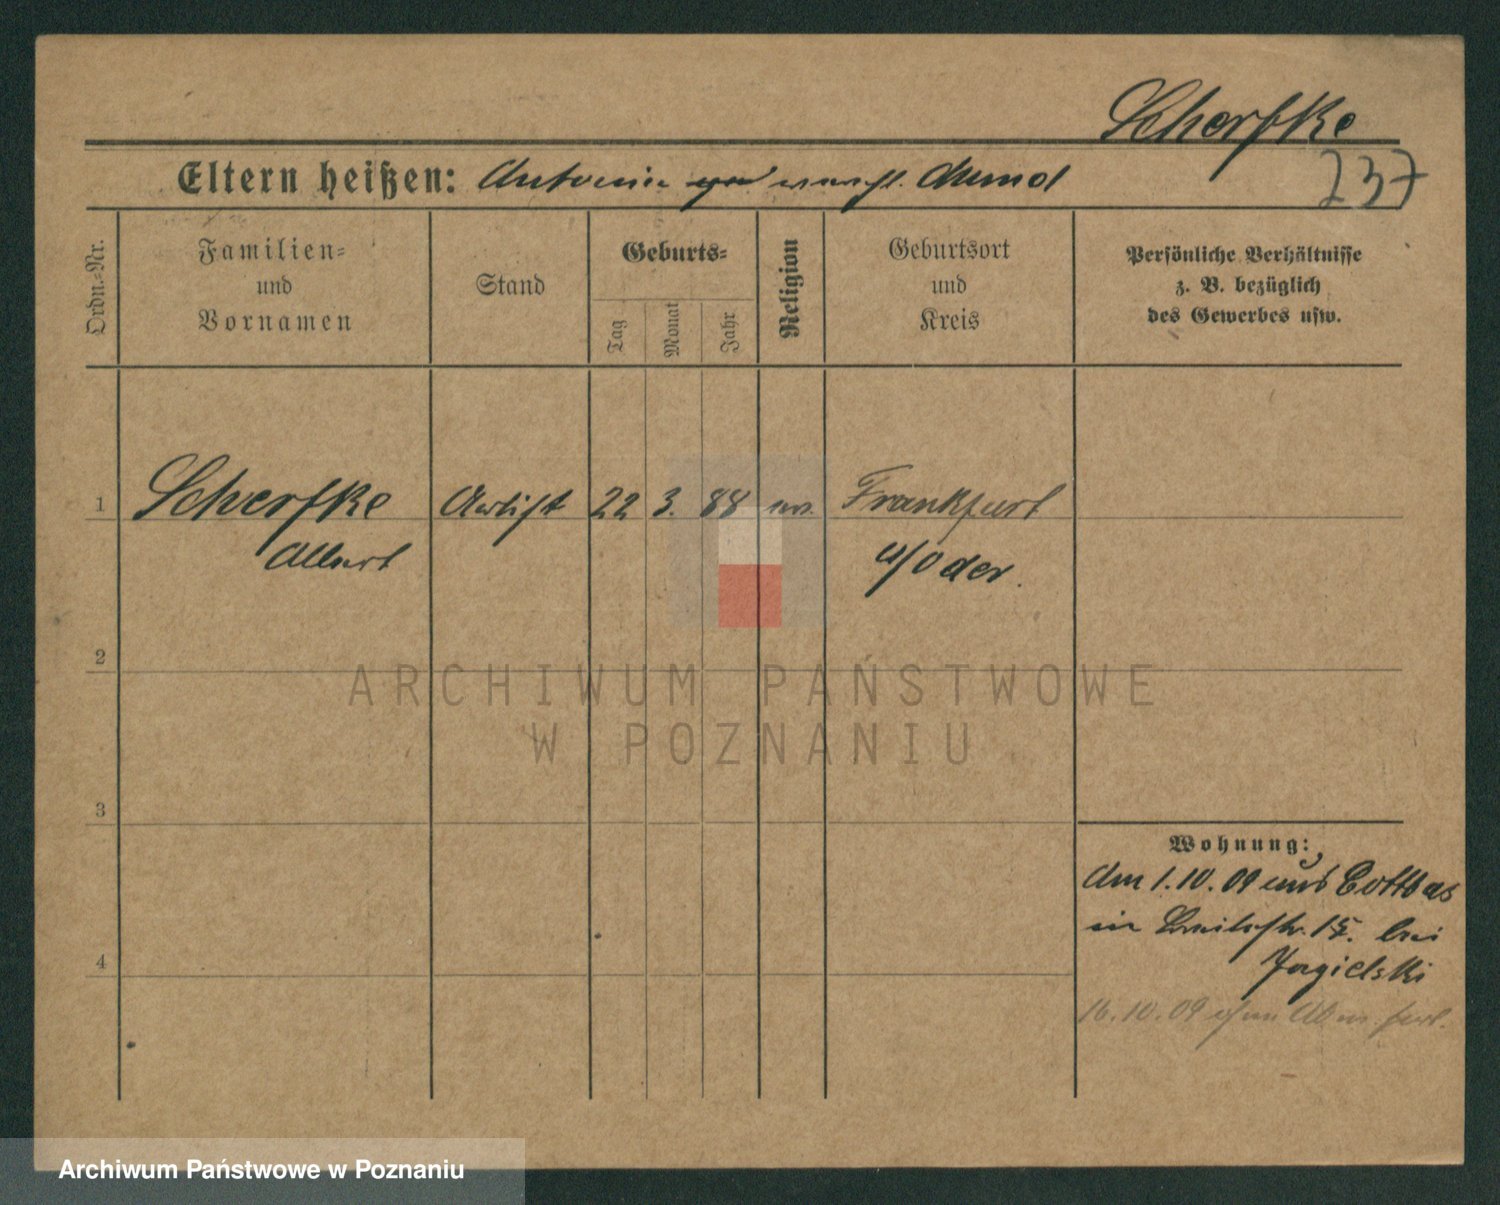 Scherfke
Eltern heißen: Antonie verehl. Mund
237
Ordn.-Nr.
Familien-
und
Vornamen
Stand
Geburts-
Tag
Monat
Jahr
Religion
Geburtsort
und
Kreis
Persönliche Verhältnisse
z. B. bezüglich
des Gewerbes usw.
1 Scherfke Artist 22 3. 88 ev. Frankfurt
Albert a/Oder.
2
3
4
Wohnung:
Am 1.10.09 aus Cottbus
in Breitestr. 15. bei
Jagielski
16.10.09 ohne Abm. fort.
ARCHIWUM PAŃSTWOWE
W POZNANIU
Archiwum Państwowe w Poznaniu